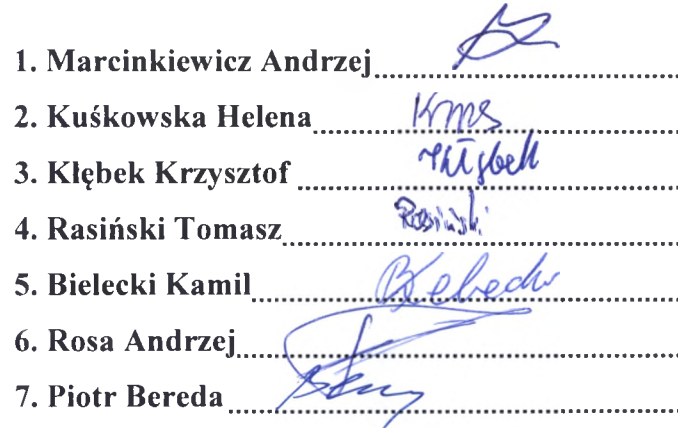 1. Marcinkiewicz Andrzej
2. Kuśkowska Helena
3. Kłębek Krzysztof
4. Rasiński Tomasz Rasiński
5. Bielecki Kamil
6. Rosa Andrzej
7. Piotr Bereda